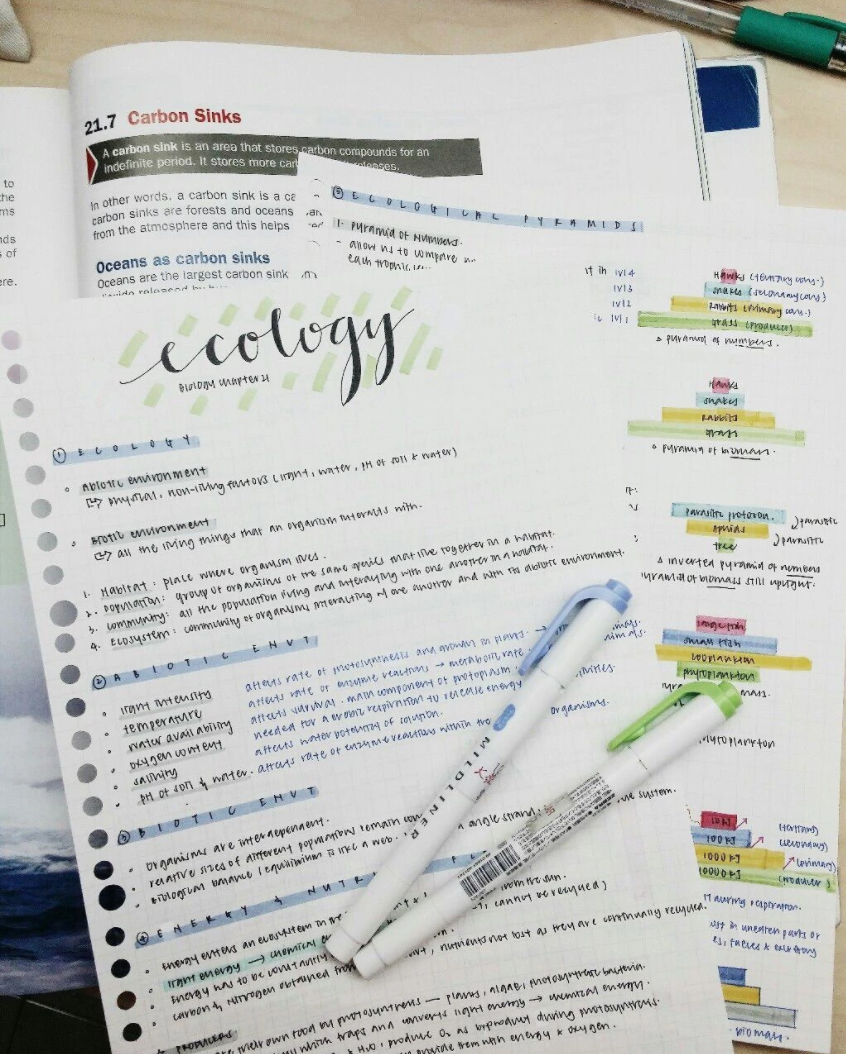 to
the
ms
nds
s of
ere.
21.7 Carbon Sinks
A carbon sink is an area that stores carbon compounds for an
indefinite period. It stores more car releases.
In other words, a carbon sink is a ca
carbon sinks are forests and oceans
from the atmosphere and this helps
Oceans as carbon sinks
Oceans are the largest carbon sink
③ ECOLOGICAL PYRAMIDS
1. Pyramid of Numbers.
- allow us to compare
each trophic
lvl 4
lvl 3
lvl 2
lvl 1
Hawks (tertiary cons.)
snakes (secondary cons)
Rabbits (primary con.)
Grass (producer)
pyramid of numbers.
Hawks
snakes
Rabbits
Grass
pyramid of biomass.
parasitic protozoa. parasitic
aphids parasitic
tree
inverted pyramid of numbers
pyramid of biomass still upright.
large fish
small fish
zooplankton
phytoplankton
10 kJ (tertiary)
100 kJ (secondary)
1000 kJ (primary)
10000 kJ (producer)
during respiration.
lost in uneaten parts or
faeces & excretory
biomass.
ecology
Biology chapter 21
① ECOLOGY
Abiotic environment
physical, non-living factors (light, water, pH of soil & water)
Biotic environment
all the living things that an organism interacts with.
1. Habitat: place where organism lives.
2. Population: group of organisms of the same species that live together in a habitat.
3. Community: all the population living and interacting with one another in a habitat.
4. Ecosystem: community of organisms interacting w/ one another and with its abiotic environment.
② ABIOTIC ENVT
light intensity affects rate of photosynthesis and growth in plants. →
temperature affects rate of enzyme reactions → metabolic rate
water availability affects survival. main component of protoplasm
oxygen content needed for aerobic respiration to release energy
salinity affects water potential of solution.
pH of soil & water. affects rate of enzyme reaction within the organisms.
③ BIOTIC ENVT
organisms are interdependent.
relative sizes of different populations remain
biological balance / equilibrium is like a web.
④ ENERGY & NUTR
Energy enters an ecosystem in the from the sun.
light energy → chemical cannot be recycled)
Energy has to be constantly nutrients not lost as they are continually recycled.
carbon & nitrogen obtained from
PRODUCERS
their own food by photosynthesis — plants, algae, photosynthetic bacteria.
which traps and converts light energy → chemical energy.
& H₂O, produce O₂ as byproduct during photosynthesis.
provide them with energy & oxygen.
MILDLINER